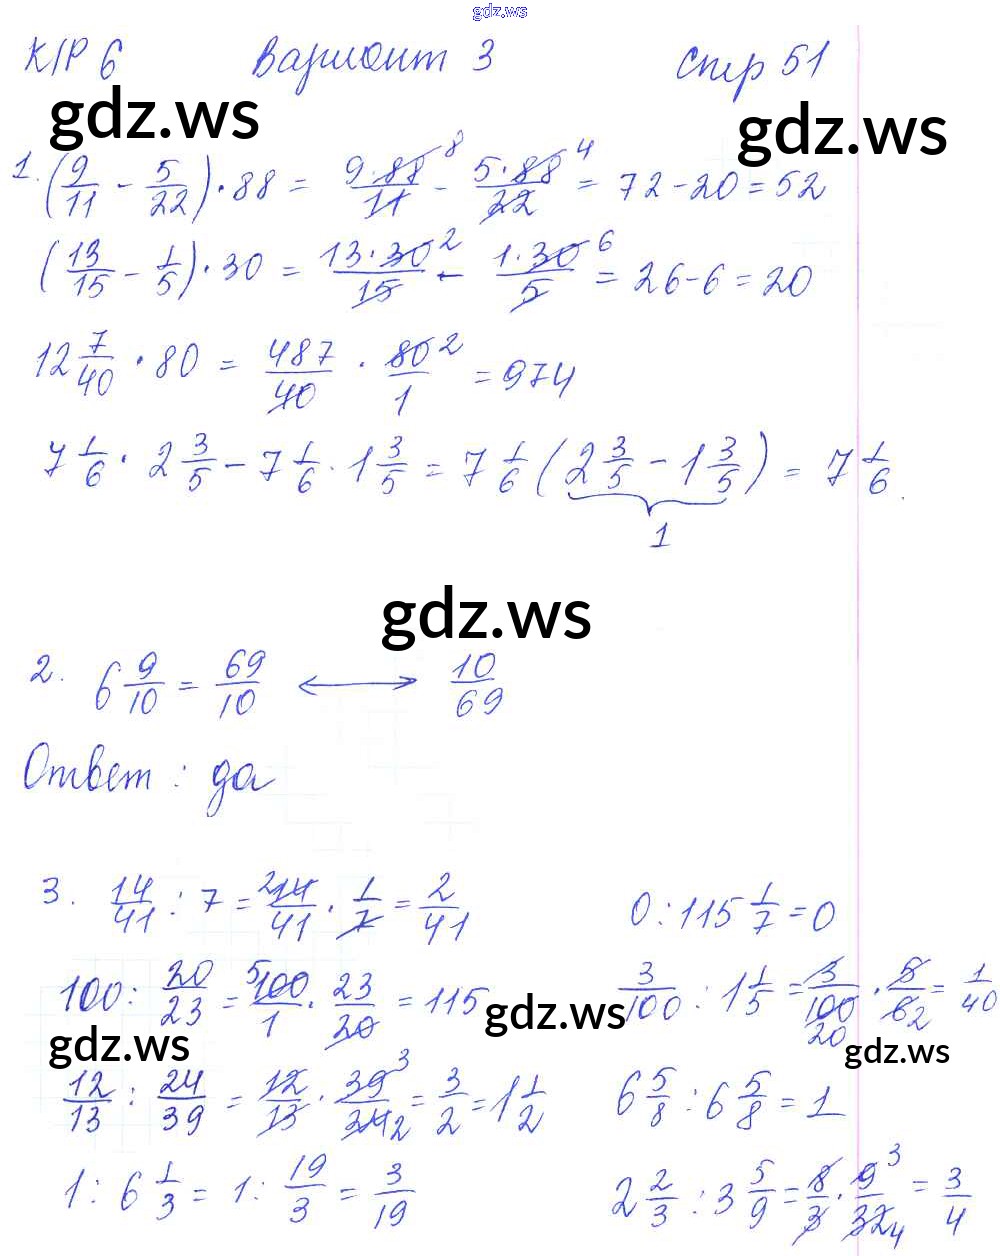 gdz.ws
К/Р 6 Вариант 3 Стр 51
gdz.ws gdz.ws
1. (9/11 - 5/22) · 88 = 9·88 8/11 - 5·88 4/22 = 72 - 20 = 52
(13/15 - 1/5) · 30 = 13·30 2/15 - 1·30 6/5 = 26 - 6 = 20
12 7/40 · 80 = 487/40 · 80 2/1 = 974
7 1/6 · 2 3/5 - 7 1/6 · 1 3/5 = 7 1/6 (2 3/5 - 1 3/5) = 7 1/6
1
gdz.ws
2. 6 9/10 = 69/10 ⟷ 10/69
Ответ : да
3. 14/41 : 7 = 2 14/41 · 1/7 = 2/41 0 : 115 1/7 = 0
100 : 20/23 = 5 100/1 · 23/20 = 115 3/100 : 1 1/5 = 3/100 20 · 5/6 2 = 1/40
gdz.ws gdz.ws gdz.ws
12/13 : 24/39 = 12/13 · 39 3/24 2 = 3/2 = 1 1/2 6 5/8 : 6 5/8 = 1
1 : 6 1/3 = 1 : 19/3 = 3/19 2 2/3 : 3 5/9 = 8/3 · 9 3/32 4 = 3/4